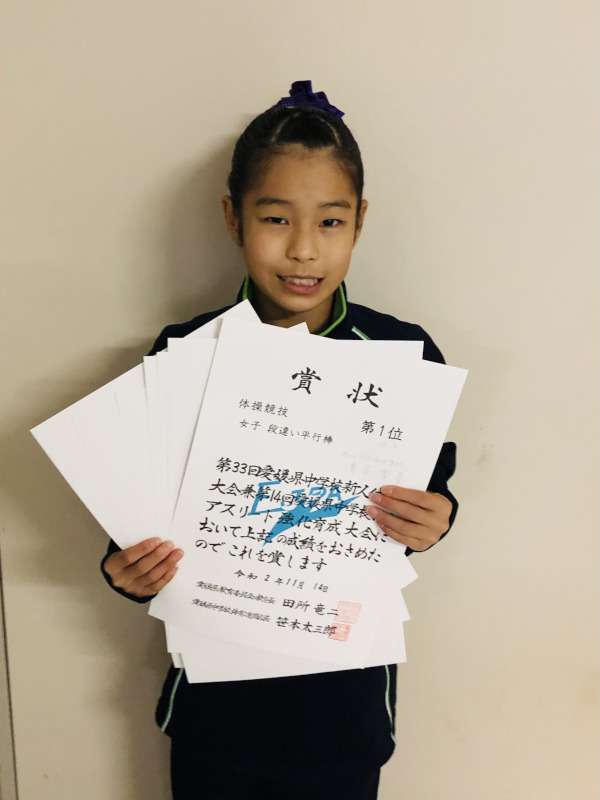 賞状
体操競技
第1位
女子 段違い平行棒
第33回愛媛県中学校新人
大会兼第14回愛媛県中学校
アスリート強化育成大会に
おいて上記の成績をおさめた
のでこれを賞します
令和2年11月14日
田所竜二
笹本太三郎